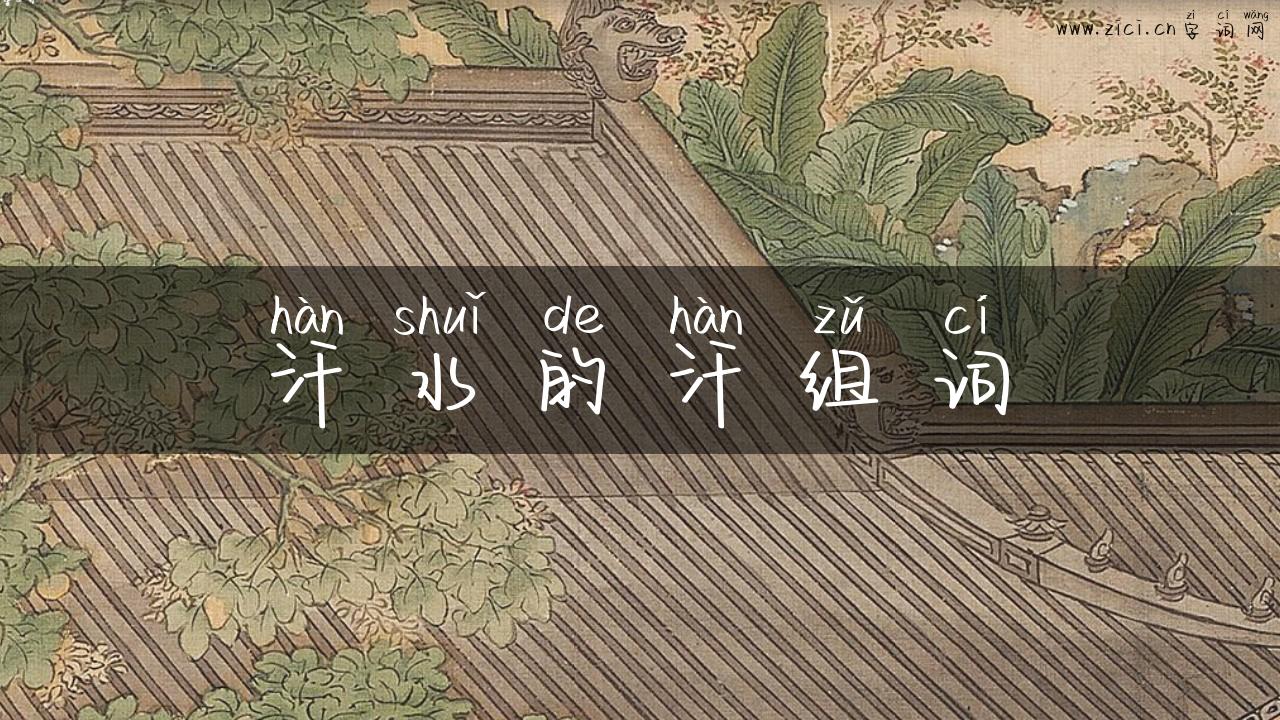 zì cí wǎng
www.zici.cn 字 词 网
hàn shuǐ de hàn zǔ cí
汗 水 的 汗 组 词